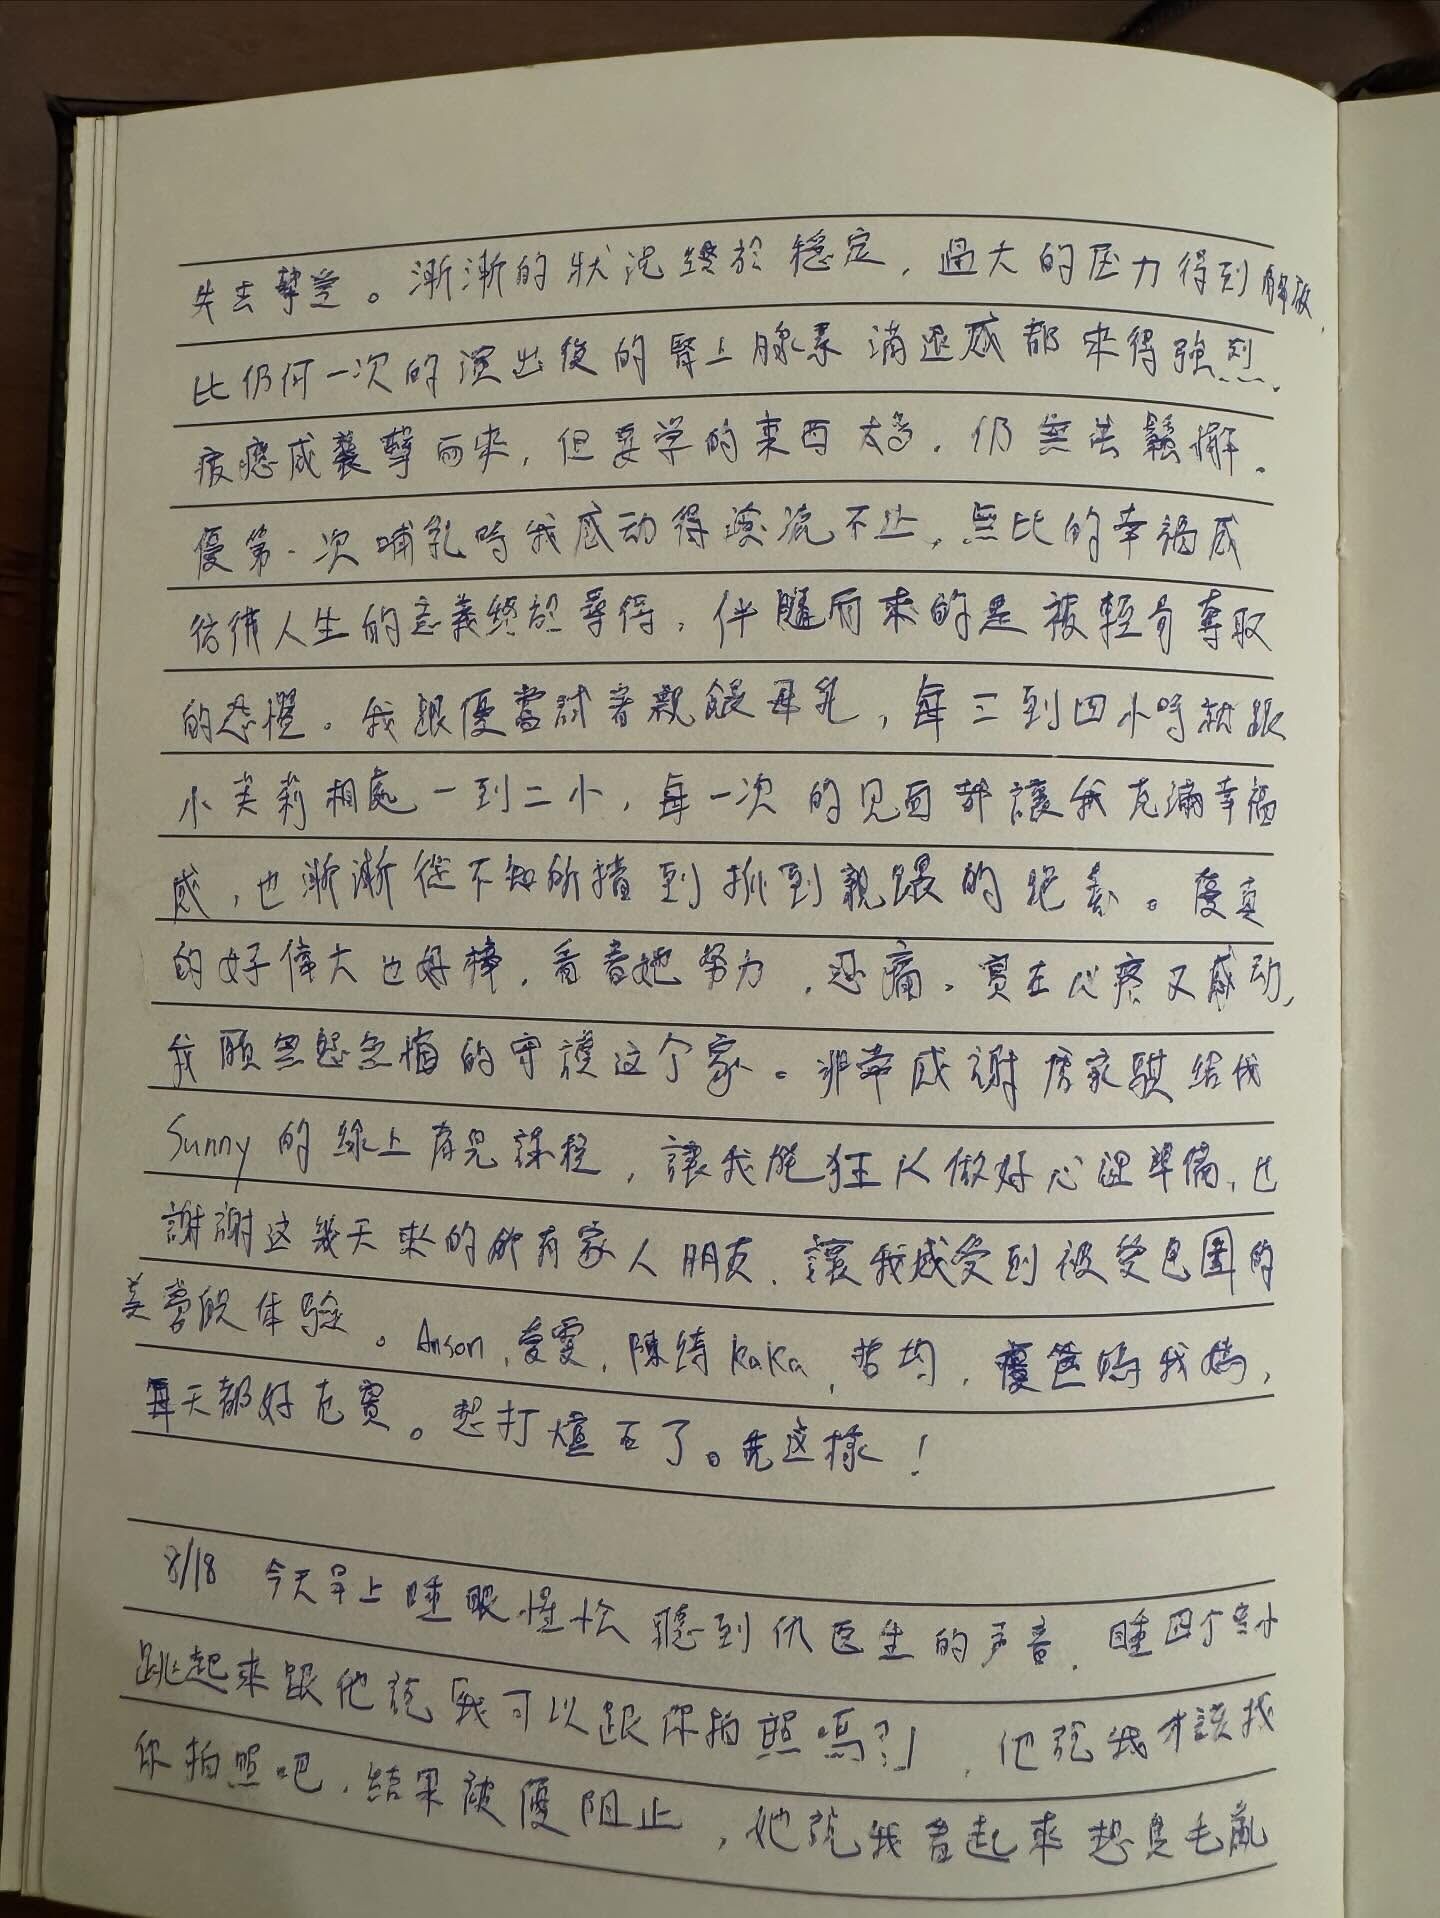 失去摯愛。漸漸的狀況終於穩定，過大的压力得到解放，
比仍何一次的演出後的腎上腺素消退感都來得強烈、
疲憊感襲擊而來，但要学的東西太多，仍無法鬆懈。
優第一次哺乳時我感动得淚流不止，無比的幸福感
彷彿人生的意義終於尋得，伴隨而來的是被輕易奪取
的恐懼。我跟優嘗試著親餵母乳，每三到四小時就跟
小茉莉相處一到二小，每一次的見面都讓我充滿幸福
感，也漸漸從不知所措到抓到親餵的絕奏。優真
的好偉大也好棒，看著她努力，忍痛，實在心疼又感动，
我願無怨無悔的守護这个家。非常感謝 家騏給我
Sunny的線上育兒課程，讓我能 以做好心理準備，也
謝謝这幾天來的所有家人朋友，讓我感受到被愛包圍的
美 的体验。Anson, 愛雯，陳綺 KaKa，哲均，優爸媽我媽，
每天都好充實。想打 石了。先这樣！
8/18 今天早上睡眼惺忪聽到仇医生的声音，睡四个 小
跳起來跟他說「我可以跟你拍照嗎？」，他說我才該找
你拍照吧，結果被優阻止，她說我看起來超臭毛亂